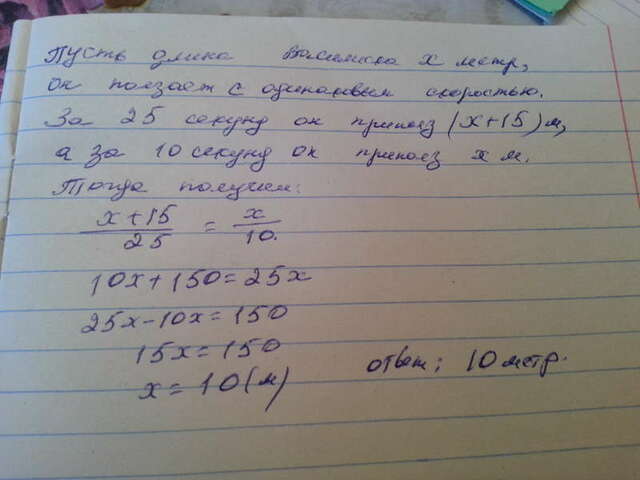 Пусть длина Василиска x метр,
он ползает с одинаковым скоростью.
За 25 секунд он приполз (x+15) м,
а за 10 секунд он приполз x м.
Тогда получим:
x+15 / 25 = x / 10.
10x+150=25x
25x-10x=150
15x=150
x=10(м)
ответ: 10 метр.